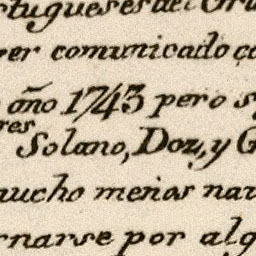 rtugueses del Gra
ver comunicado co
año 1743 pero s
res Solano, Doz, y G
mucho menos nav
rnarse por alg